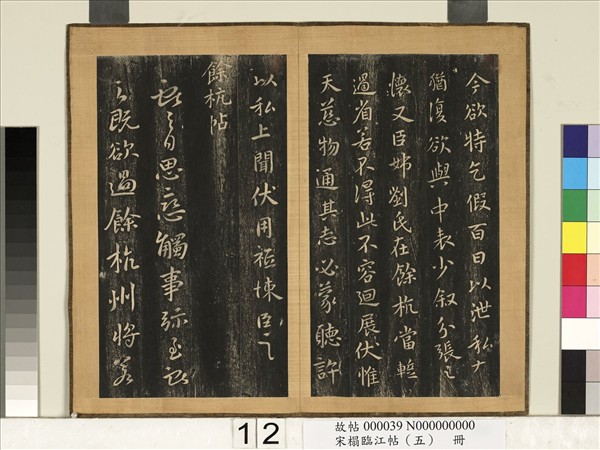 今欲特乞假百日以泄私
猶復欲與中表少叙分張之
懷又臣姊劉氏在餘杭當
過省若不得此不容迴展伏惟
天慈物通其志必蒙聽許
以私上聞伏用祗悚臣
餘杭帖
獻之白思戀觸事弥至獻
之既欲過餘杭州將若
12
故帖 000039 N000000000
宋榻臨江帖（五） 冊